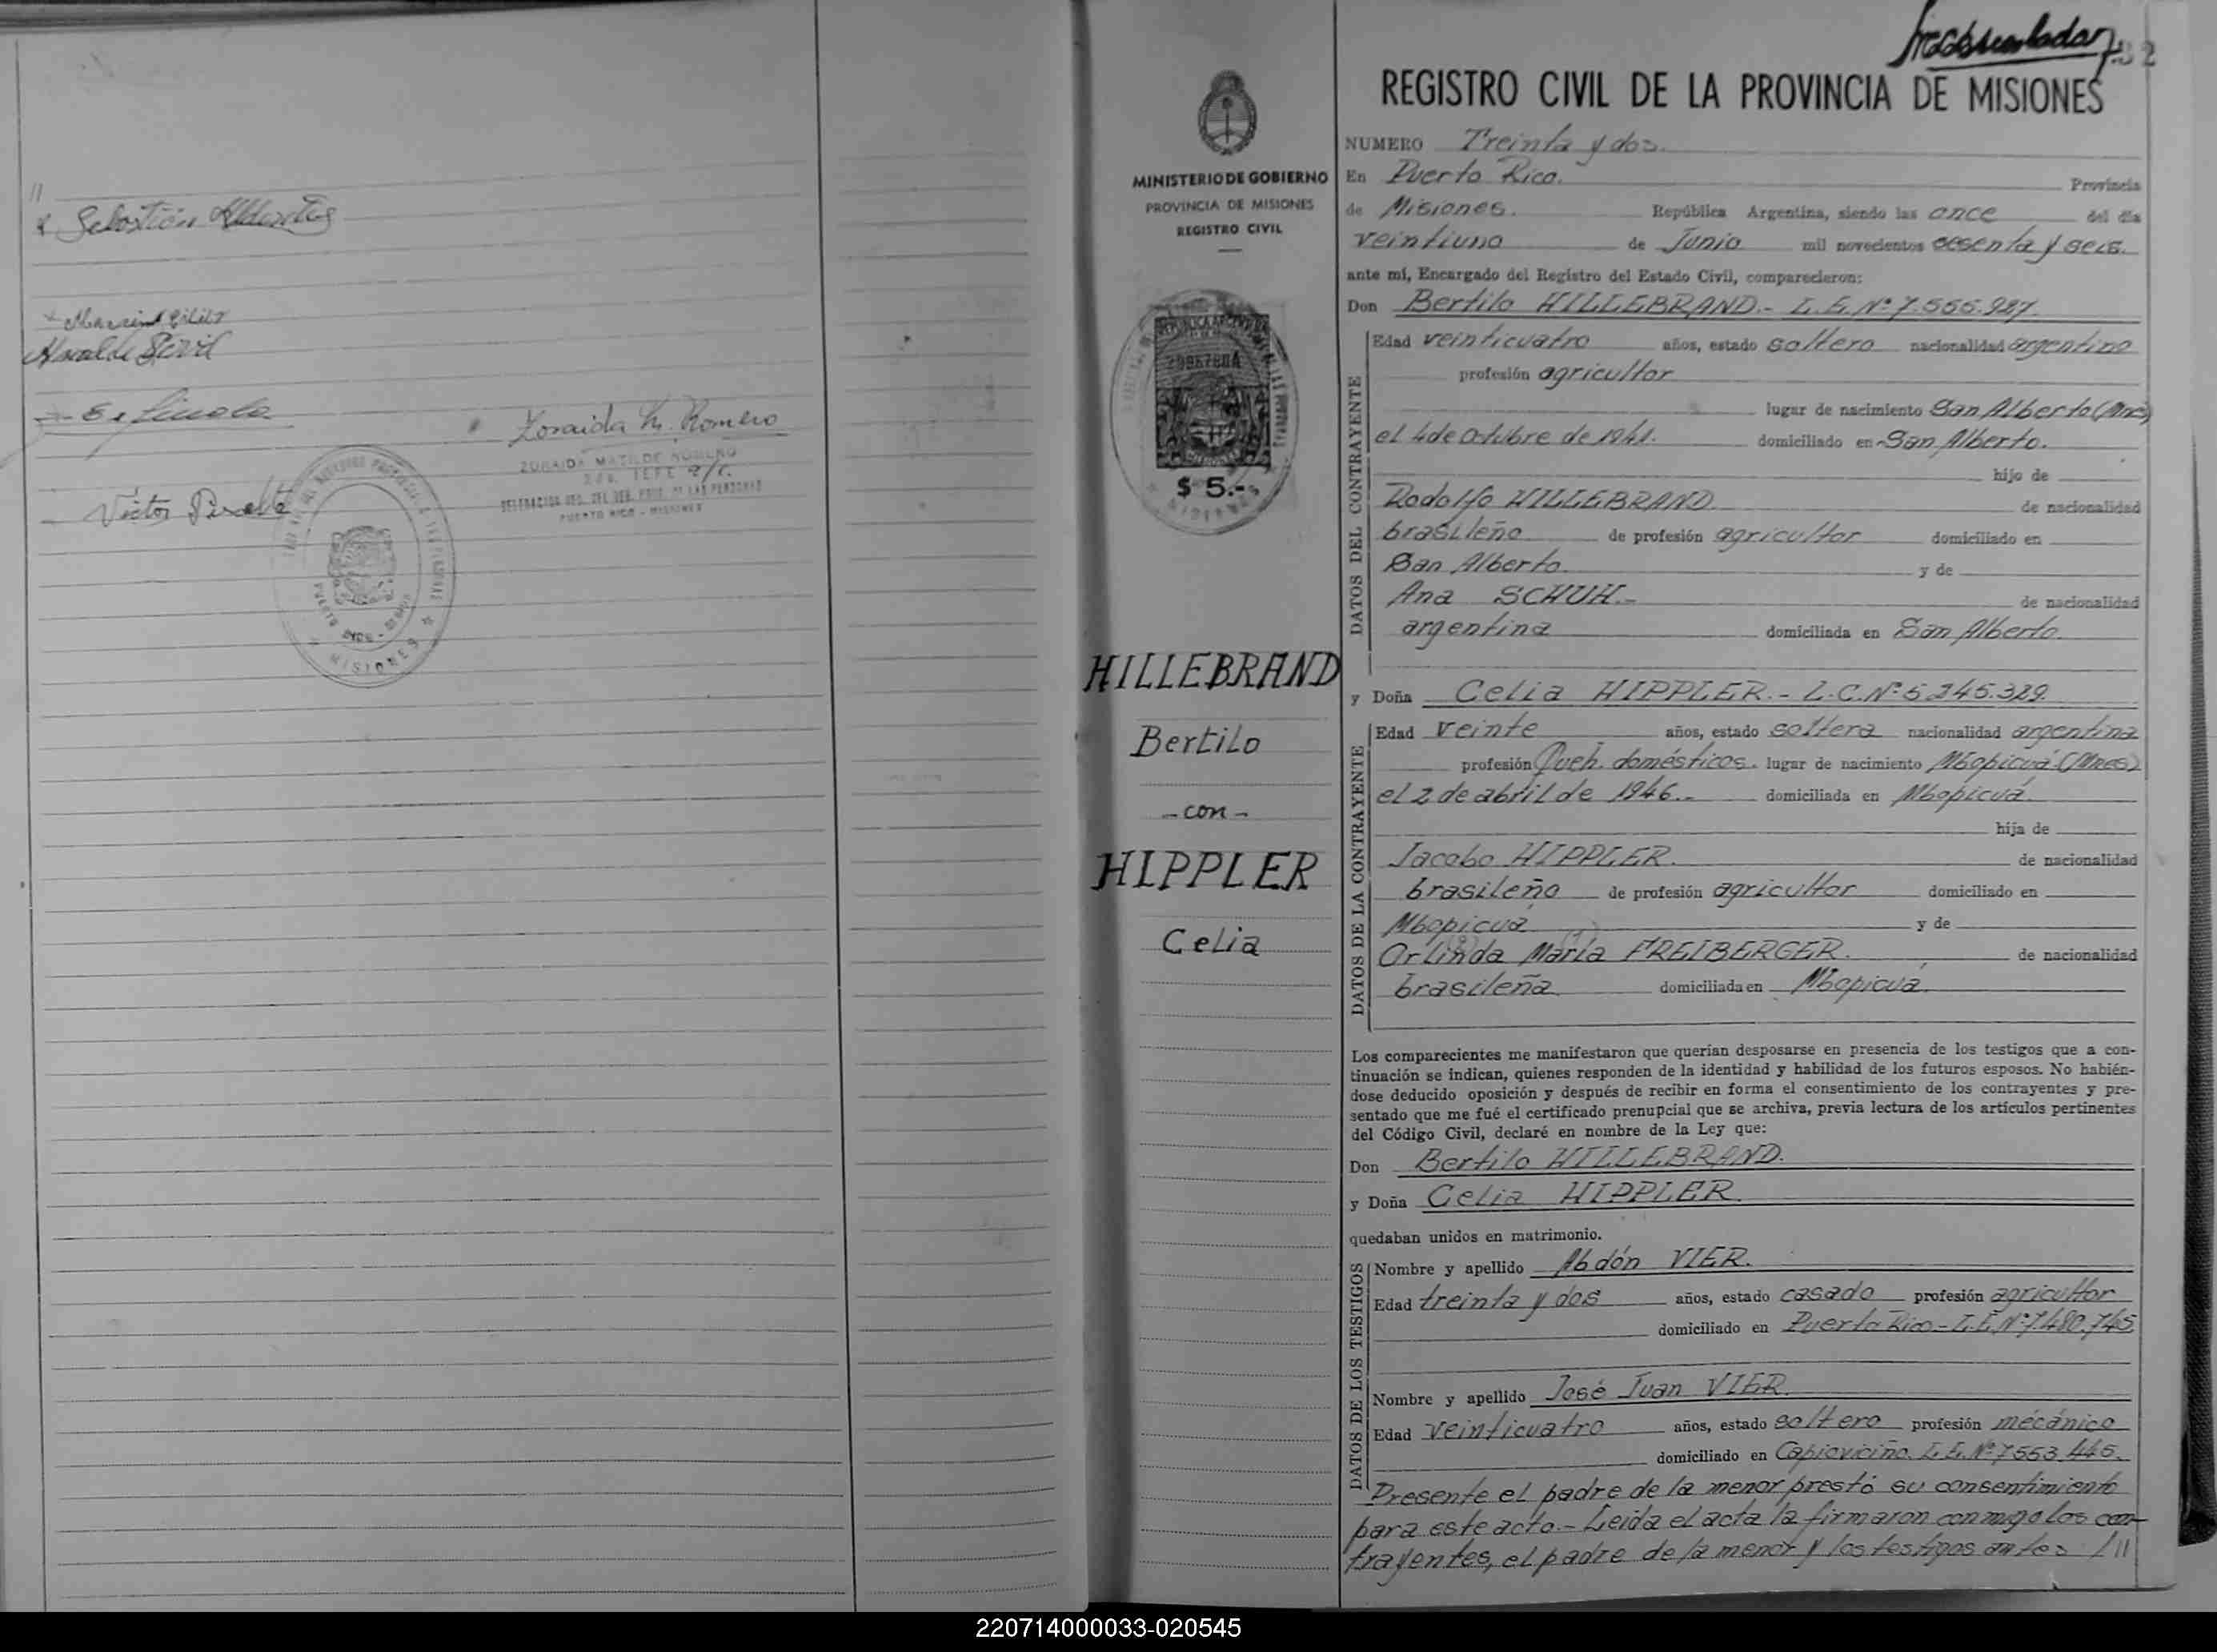 //
Sebastián
Víctor Peralta
Zoraida M. Romero
ZORAIDA MATILDE ROMERO
JEFE
PUERTO RICO - MISIONES
PUERTO RICO
MISIONES
MINISTERIO DE GOBIERNO
PROVINCIA DE MISIONES
REGISTRO CIVIL
$ 5.-
MISIONES
HILLEBRAND
Bertilo
- con -
HIPPLER
Celia
32
REGISTRO CIVIL DE LA PROVINCIA DE MISIONES
NUMERO Treinta y dos.
En Puerto Rico. Provincia
de Misiones. República Argentina, siendo las once del día
veintiuno de Junio mil novecientos sesenta y seis.
ante mí, Encargado del Registro del Estado Civil, comparecieron:
Don Bertilo HILLEBRAND.- L.E.Nº 7.566.987.
DATOS DEL CONTRAYENTE
Edad veinticuatro años, estado soltero nacionalidad argentino
profesión agricultor
lugar de nacimiento San Alberto (Mnes)
el 4 de Octubre de 1941. domiciliado en San Alberto.
hijo de
Rodolfo HILLEBRAND. de nacionalidad
brasileño de profesión agricultor domiciliado en
San Alberto. y de
Ana SCHUH.- de nacionalidad
argentina domiciliada en San Alberto.
y Doña Celia HIPPLER.- L.C.Nº 5.245.329.
DATOS DE LA CONTRAYENTE
Edad veinte años, estado soltera nacionalidad argentina
profesión Queh. domésticos. lugar de nacimiento Mbopicuá (Mnes)
el 2 de abril de 1946.- domiciliada en Mbopicuá.
hija de
Jacobo HIPPLER. de nacionalidad
brasileño de profesión agricultor domiciliado en
Mbopicuá y de
Orlinda María FREIBERGER. de nacionalidad
brasileña domiciliada en Mbopicuá.
Los comparecientes me manifestaron que querían desposarse en presencia de los testigos que a con-
tinuación se indican, quienes responden de la identidad y habilidad de los futuros esposos. No habién-
dose deducido oposición y después de recibir en forma el consentimiento de los contrayentes y pre-
sentado que me fué el certificado prenupcial que se archiva, previa lectura de los artículos pertinentes
del Código Civil, declaré en nombre de la Ley que:
Don Bertilo HILLEBRAND.
y Doña Celia HIPPLER.
quedaban unidos en matrimonio.
DATOS DE LOS TESTIGOS
Nombre y apellido Abdón VIER.
Edad treinta y dos años, estado casado profesión agricultor
domiciliado en Puerto Rico - L.E.Nº 7.480.745
Nombre y apellido José Juan VIER.
Edad veinticuatro años, estado soltero profesión mécánico
domiciliado en L.E.Nº 7.553.445.
Presente el padre de la menor prestó su consentimiento
para este acto.- Leída el acta la firmaron conmigo los con-
trayentes, el padre de la menor y los testigos antes ///
220714000033-020545